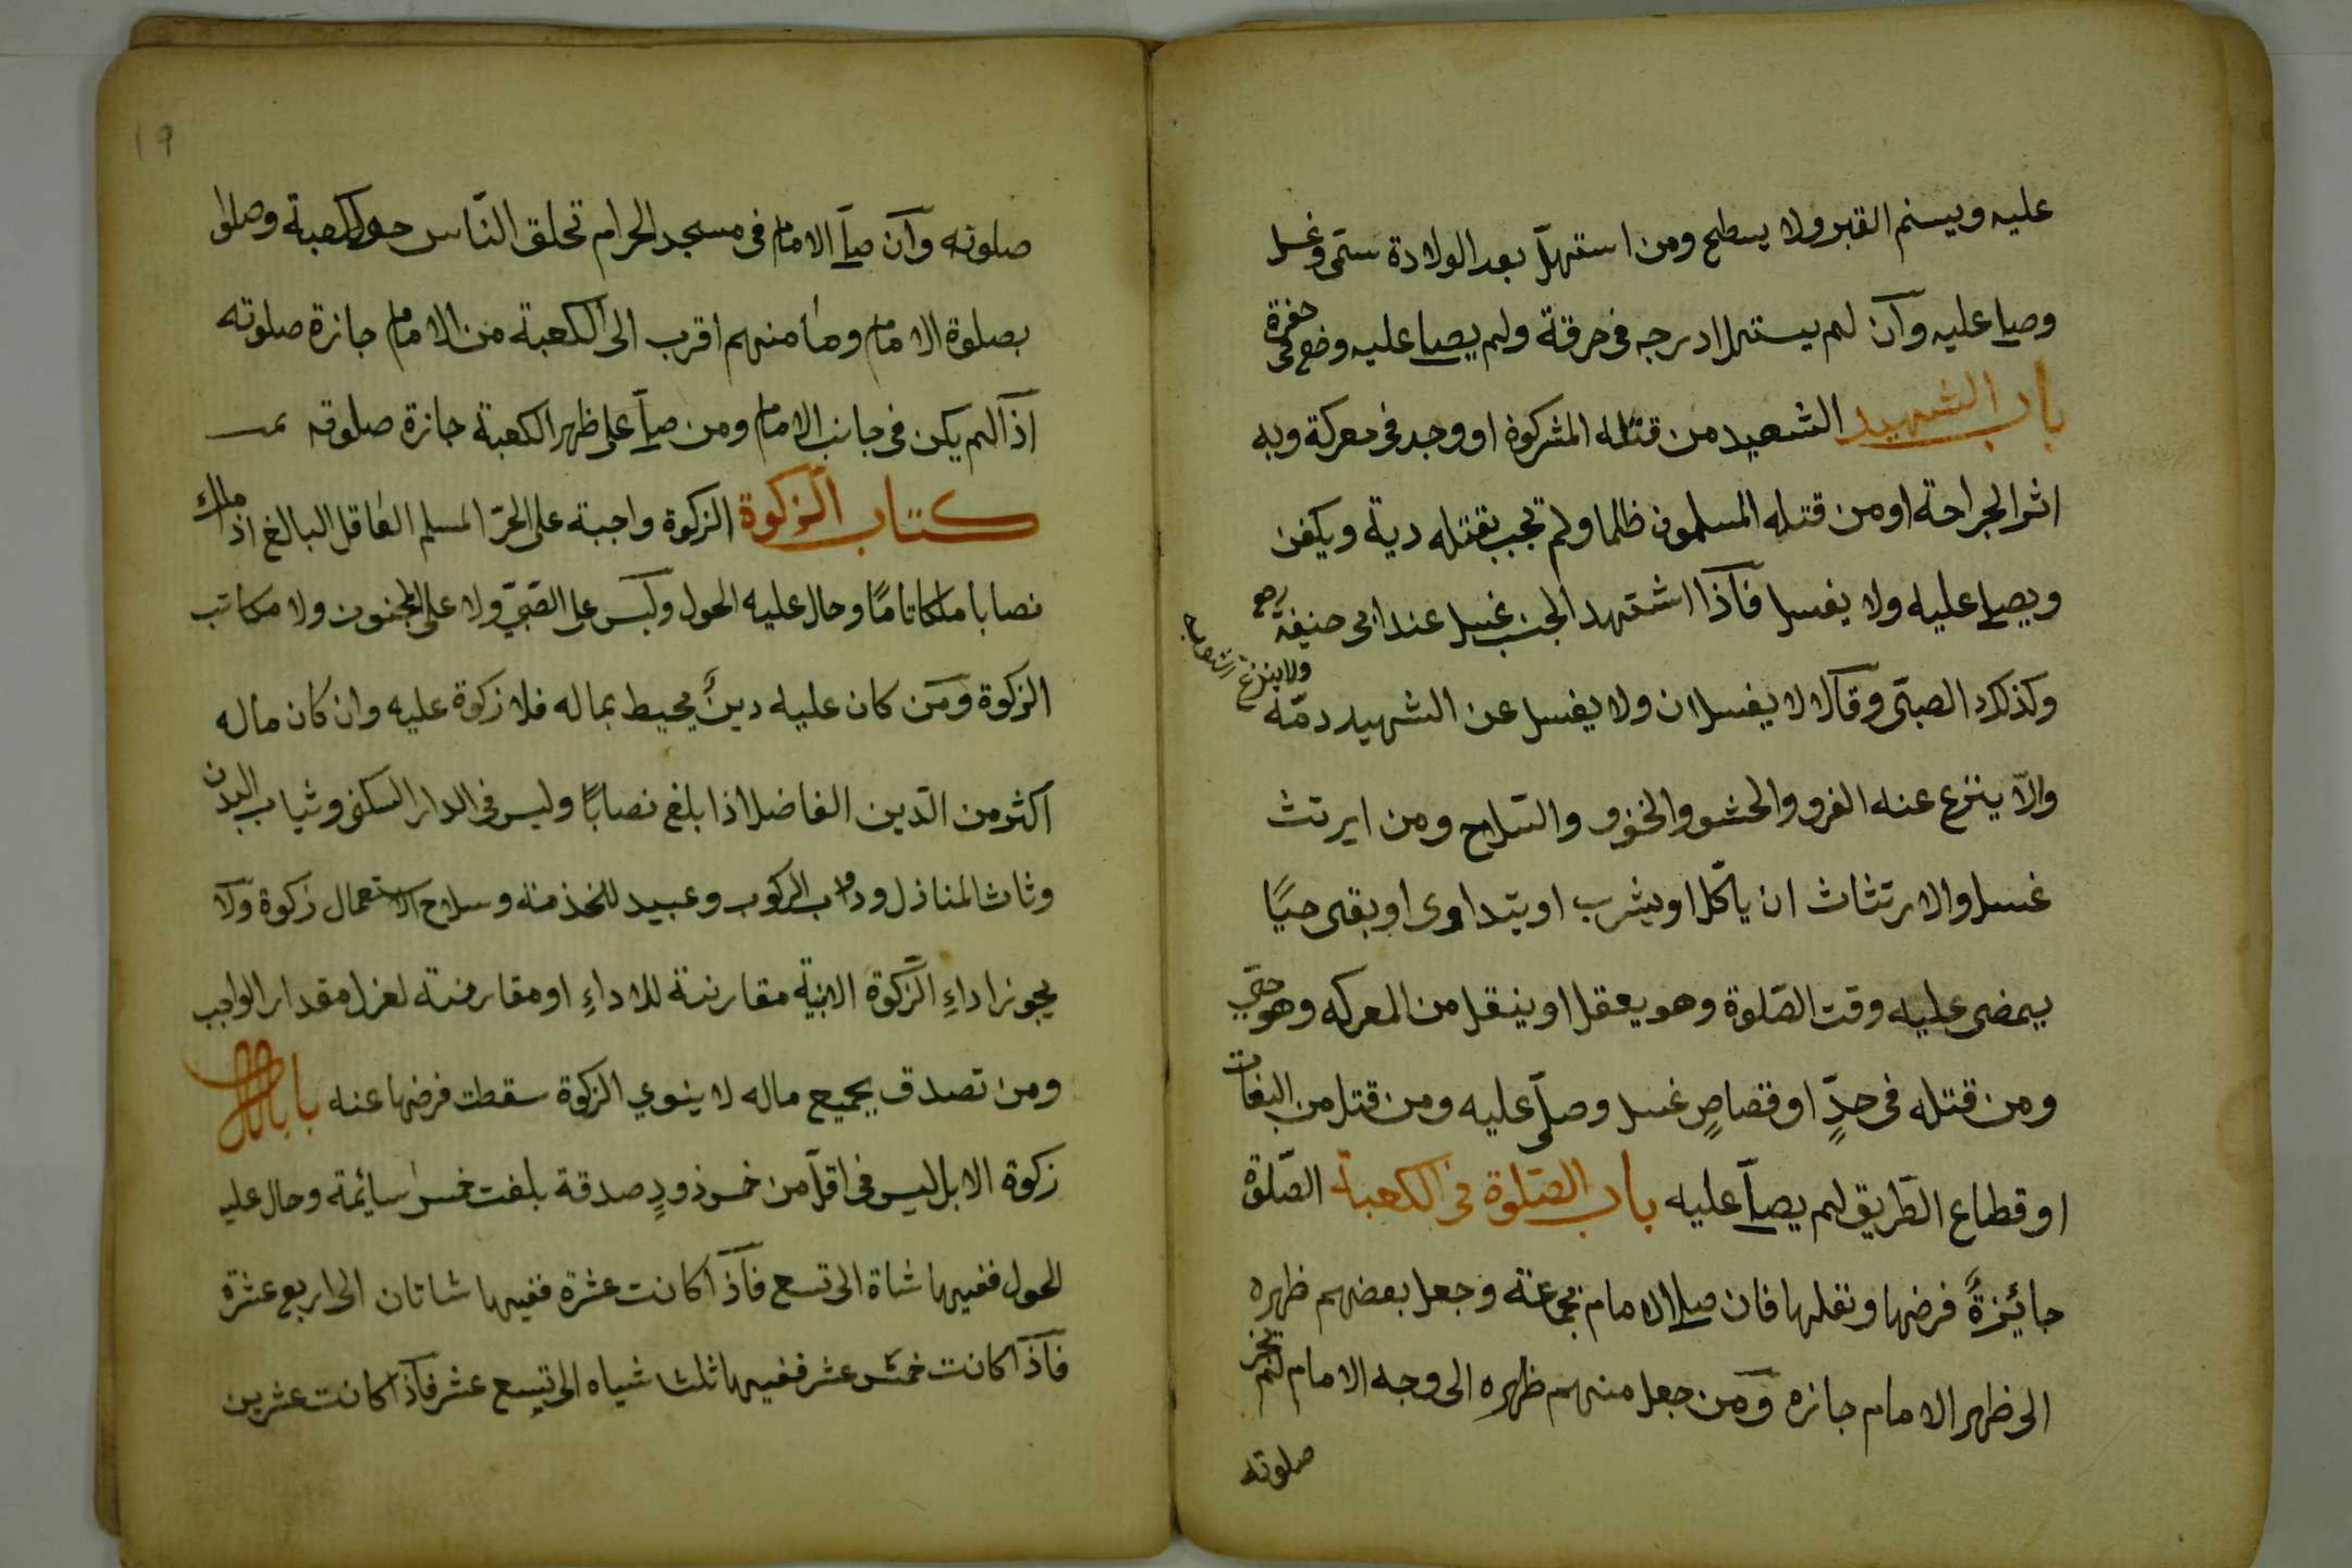 عليه ويسنم القبر ولا يسطح ومن استهلّ بعد الولادة سمّى وغسل
وصلى عليه وآن لم يستهل ادرجه فى خرقة ولم يصلى عليه وضع فى حفرة
باب الشهيد الشهيد من قتله المشركون او وجد فى معركة وبه
اثر الجراحة او من قتله المسلمون ظلما ولم تجب بقتله دية ويكفن
ويصلى عليه ولا يغسل فآذا اشتهد الجنب غسل عند ابى حنيفة رح
وكذلك الصبىّ وقآلا لا يغسلان ولا يغسل عن الشهيد دمّه ولا ينزع الثوابه
والآ ينزع عنه الفرو والحشو والخف والسّلاح ومن ايرتث
غسل والارتثاث ان يأكل او يشرب او يتداوى او بقى حيًّا
يمضى عليه وقت الصّلوة وهو يعقل او ينقل من المعركه وهو حىّ
ومن قتله فى حدٍّ او قصاصٍ غسل وصلّى عليه ومن قتل من البغات
او قطاع الطّريق لم يصلّى عليه باب الصّلوة فى الكعبة الصّلوة
جائيزةً فرضها ونفلها فان صلى الامام بجماعتة وجعل بعضهم ظهره
الى ظهر الامام جازه وَمن جعل منهم ظهره الى وجه الامام لم يجز
صلوته
١٩
صلوته وآن صلّى الامام فى مسجد الحرام تحلق النّاس حول الكعبة وصلوا
بصلوة الامام وما منهم اقرب الى الكعبة من الامام جازة صلوته
اذآ لم يكن فى جانب الامام ومن صلّى على ظهر الكعبة جازة صلوته تمت
كتاب الزكوة الزكوة واجبة على الحرّ المسلم العاقل البالغ اذا ملك
نصابا ملكا تامًا وحال عليه الحول وليس على الصّبىّ ولا على المجنون ولا مكاتب
الزكوة وَمَن كان عليه دينٌ يحيط بماله فلا زكوة عليه وان كان ماله
اكثر من الدّين الفاضل اذا بلغ نصابًا وليس فى الدار السكنى وثياب البدن
وثاث المناذل ودواب الركوب وعبيد للخدمة وسلاح الاستعمال زكوة ولا
يجوز اداءِ الزّكوة الابنيّة مقارنة للاداءِ او مقارنة لعزل مقدار الواجب
ومن تصدق بجميع ماله لا ينوي الزكوة سقطت فرضها عنه باب الابل
زكوة الابل ليس فى اقلّ من خمس ذودٍ صدقة بلغت خمس سائيمة وحال عليه
الحول ففيها شاة الى تسع فآذا كانت عشرة ففيها شاتان الى اربع عشرة
فاذآ كانت خمس عشر ففيها ثلث شياه الى تسع عشر فآذا كانت عشرين